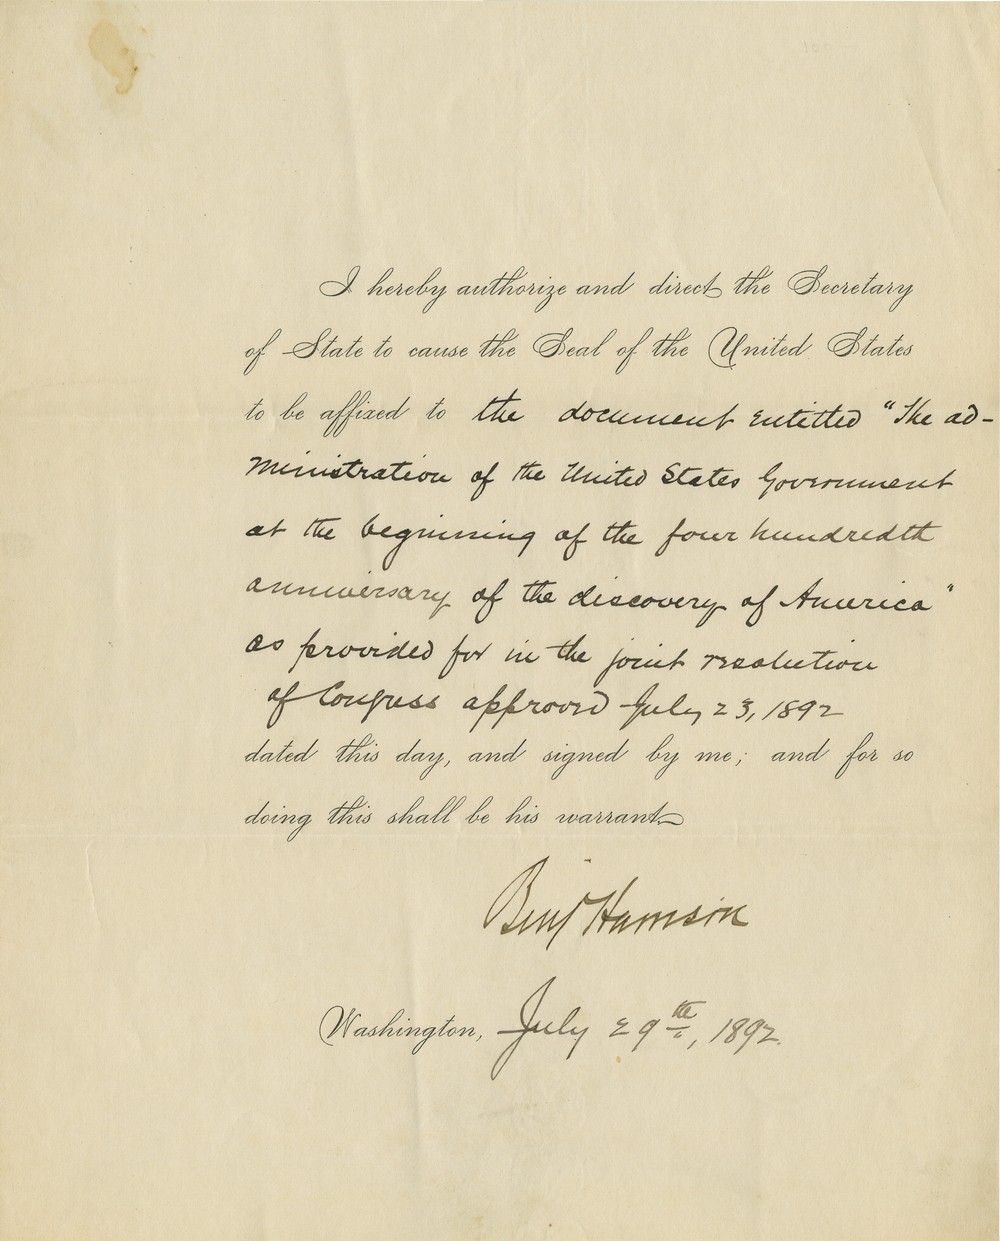 I hereby authorize and direct the Secretary
of State to cause the Seal of the United States
to be affixed to the document entitled "The ad-
ministration of the United States Government
at the beginning of the four hundredth
anniversary of the discovery of America"
as provided for in the joint resolution
of Congress approved July 23, 1892
dated this day, and signed by me; and for so
doing this shall be his warrant
Benj Harrison
Washington, July 29th, 1892.